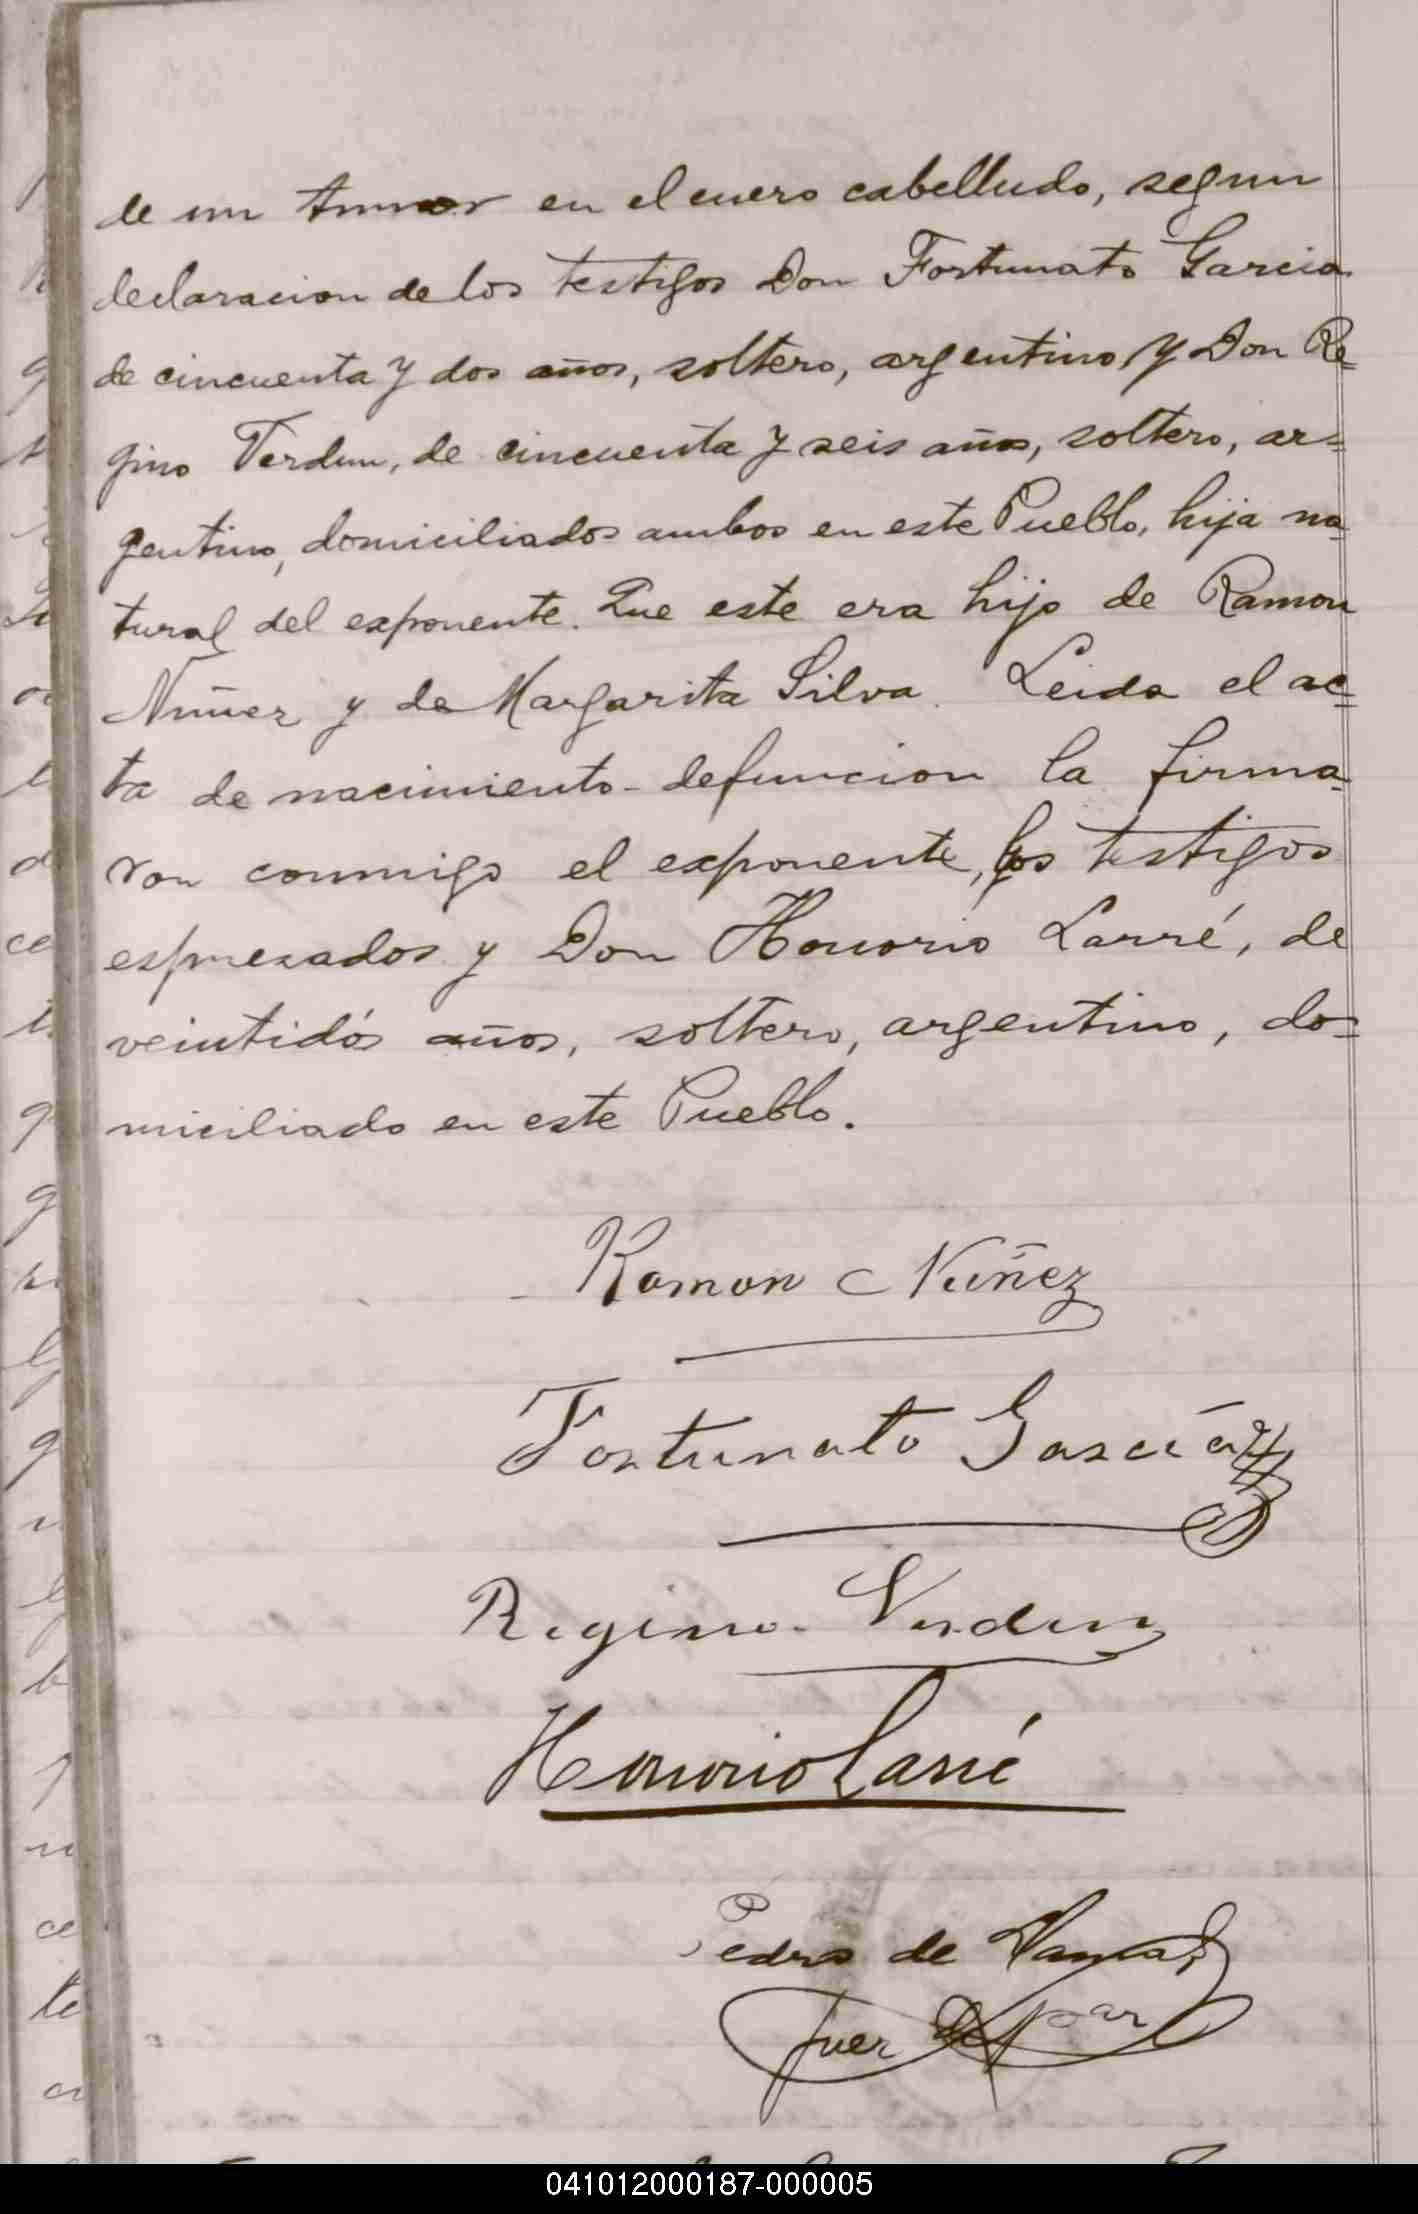 de un tumor en el cuero cabelludo, segun
declaracion de los testigos Don Fortunato Garcia
de cincuenta y dos años, soltero, argentino y Don Re=
gino Verdun, de cincuenta y seis años, soltero, ar=
gentino, domiciliados ambos en este Pueblo, hija na=
tural del exponente. Que este era hijo de Ramon
Nuñez y de Margarita Silva. Leida el ac=
ta de nacimiento-defuncion la firma=
ron conmigo el exponente, los testigos
espresados y Don Honorio Larré, de
veintidós años, soltero, argentino, do=
miciliado en este Pueblo.
Ramon Nuñez
Fortunato García
Regino Verdun
Honorio Larré
Pedro de
Juez de Paz
041012000187-000005